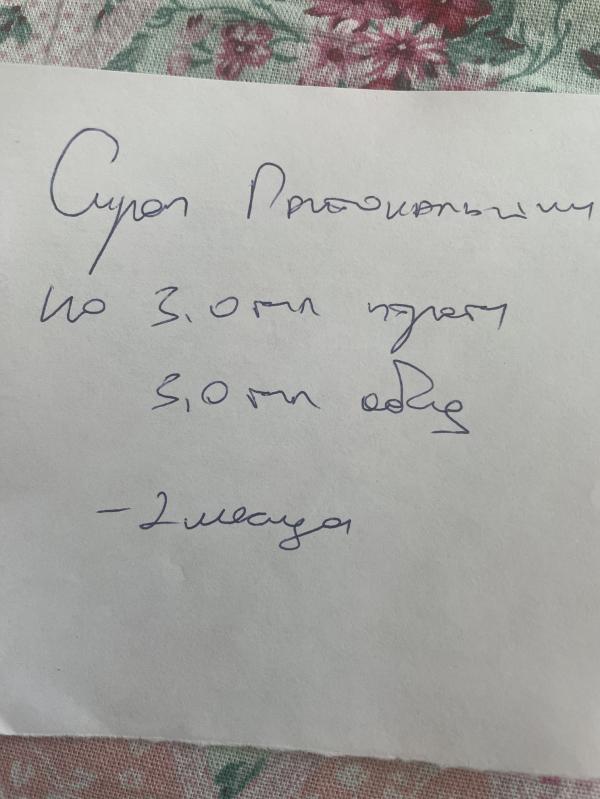 Сироп Пантокальцин
по 3,0 мл утром
3,0 мл обед
- 2 месяца